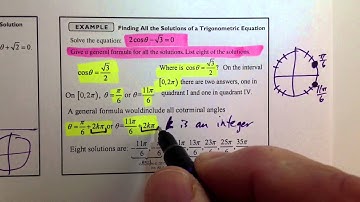 Solution
θ + √2 = 0.
EXAMPLE Finding All the Solutions of a Trigonometric Equation
Solve the equation: 2 cosθ − √3 = 0.
Give a general formula for all the solutions. List eight of the solutions.
cosθ = √3/2
Where is cosθ = √3/2? On the interval
[0,2π) there are two answers, one in
quadrant I and one in quadrant IV.
On [0,2π), θ = π/6 or θ = 11π/6
A general formula would include all coterminal angles
θ = π/6 + 2kπ or θ = 11π/6 + 2kπ, k is an integer
Eight solutions are: −11π/6, 13π/6, 23π/6, 25π/6, 35π/6
π/6
11π/6